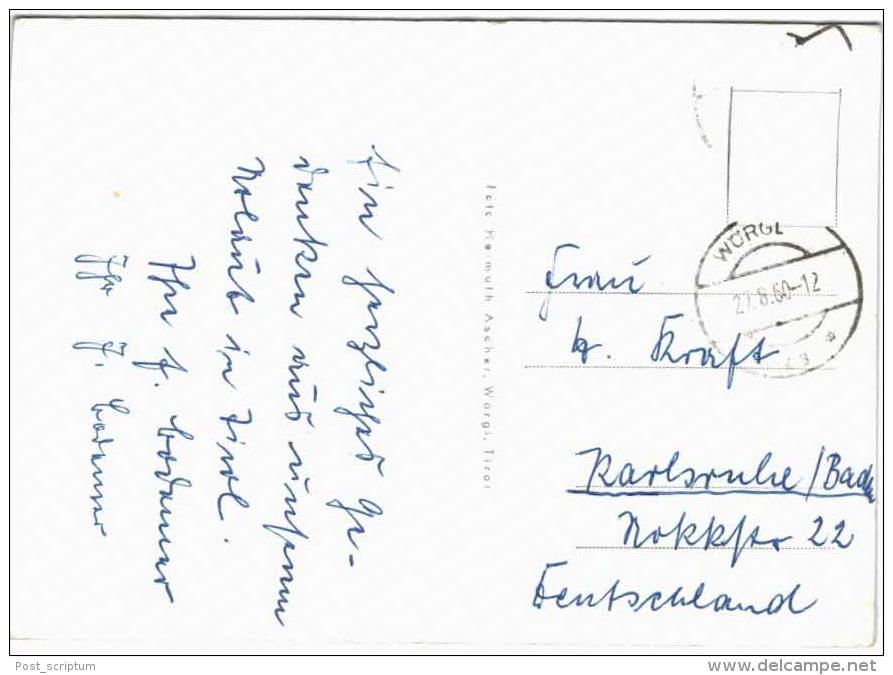 Ein herzliches Ge-
denken aus unserem
Urlaub in Tirol.
Ihre J. Bodamer
Ihr J. Bodamer
Foto Helmuth Ascher, Wörgl, Tirol
WÖRGL
27.8.60-12
Frau
Kraft
Karlsruhe/Baden
Nokkstr 22
Deutschland
Post_scriptum
www.delcampe.net